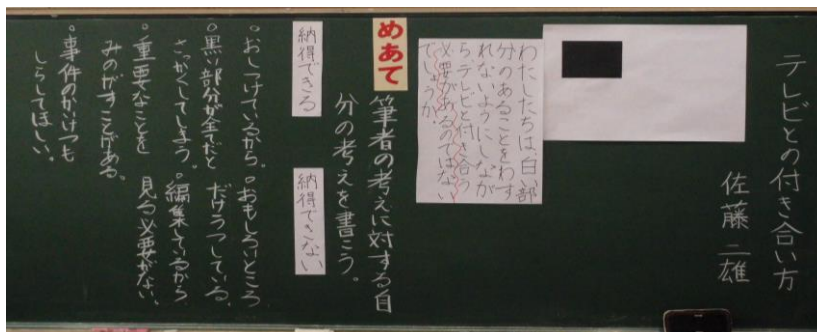 テレビとの付き合い方
佐藤二雄
わたしたちは、白い部
分のあることをわす
れないようにしなが
ら、テレビと付き合う
必要があるのではない
でしょうか。
めあて
筆者の考えに対する自
分の考えを書こう。
納得できる
。おしつけているから。
。黒い部分が全てだと
さっかくしてしまう。
。重要なことを
みのがすことがある。
。事件のかいけつも
しらしてほしい。
納得できない
。おもしろいところ
だけうつしている。
。編集しているから
見る必要がない。